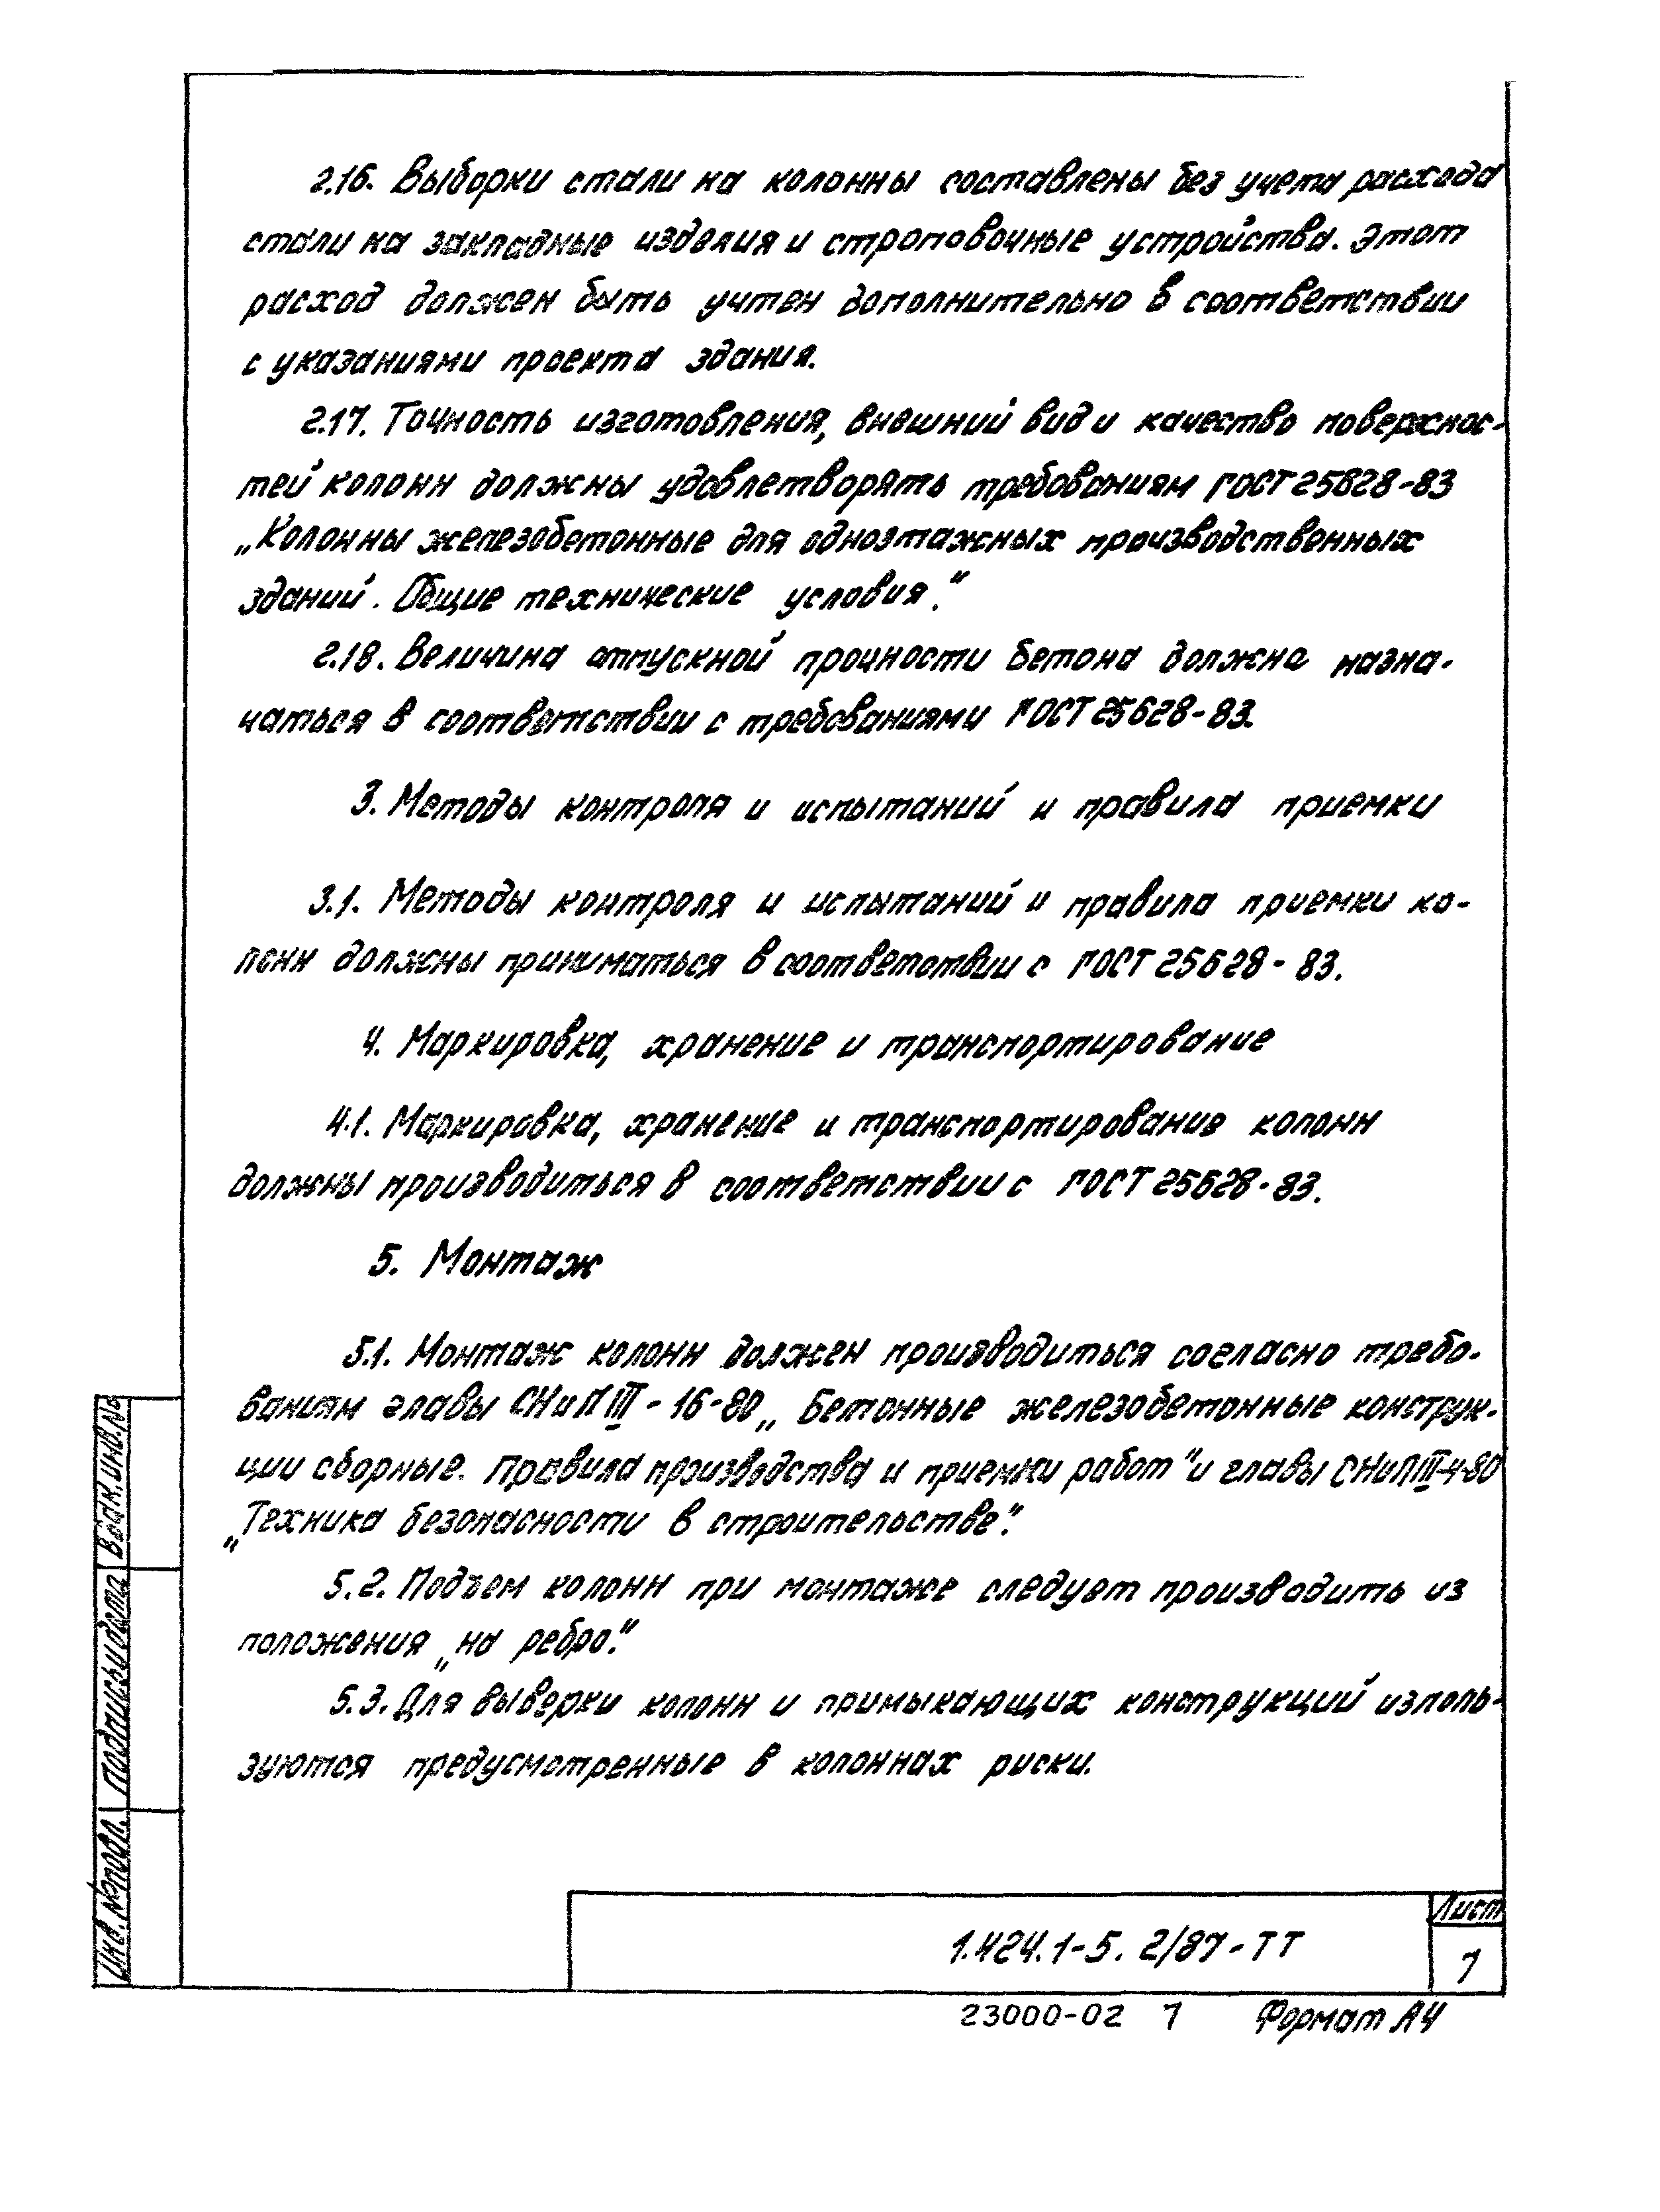 2.16. Выборки стали на колонны составлены без учета расхода
стали на закладные изделия и строповочные устройства. Этот
расход должен быть учтен дополнительно в соответствии
с указаниями проекта здания.
2.17. Точность изготовления, внешний вид и качество поверхнос-
тей колонн должны удовлетворять требованиям ГОСТ 25628-83
„Колонны железобетонные для одноэтажных производственных
зданий. Общие технические условия."
2.18. Величина отпускной прочности бетона должна назна-
чаться в соответствии с требованиями ГОСТ 25628-83.
3. Методы контроля и испытаний и правила приемки
3.1. Методы контроля и испытаний и правила приемки ко-
лонн должны приниматься в соответствии с ГОСТ 25628-83.
4. Маркировка, хранение и транспортирование
4.1. Маркировка, хранение и транспортирование колонн
должны производиться в соответствии с ГОСТ 25628-83.
5. Монтаж
5.1. Монтаж колонн должен производиться согласно требо-
ваниям главы СНиП III-16-80 „Бетонные железобетонные конструк-
ции сборные. Правила производства и приемки работ" и главы СНиП III-4-80
„Техника безопасности в строительстве".
5.2. Подъем колонн при монтаже следует производить из
положения „на ребро."
5.3. Для выверки колонн и примыкающих конструкций исполь-
зуются предусмотренные в колоннах риски.
Взам. инв. №
Подпись и дата
Инв. № подл.
1.424.1-5. 2/87-ТТ
Лист
7
23000-02 7 Формат А4